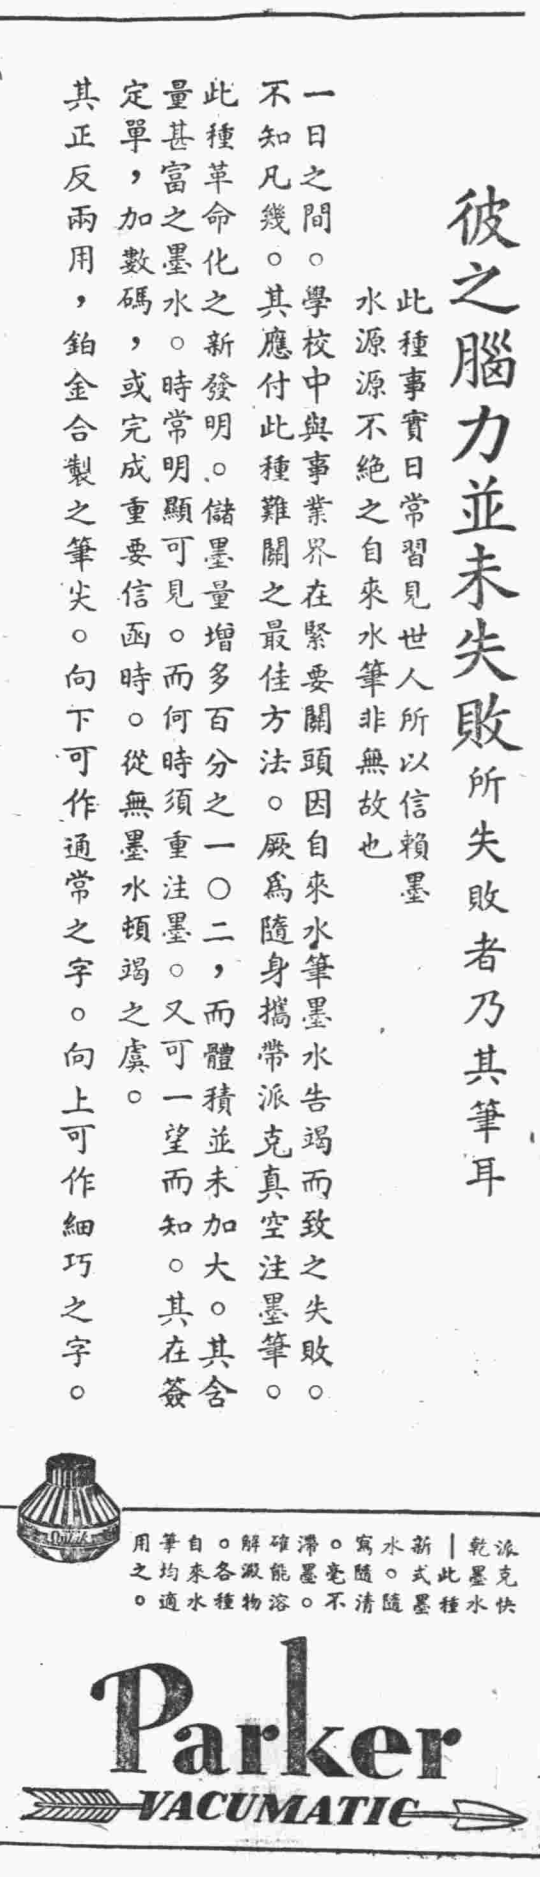 彼之腦力並未失敗所失敗者乃其筆耳
此種事實日常習見世人所以信賴墨
水源源不絕之自來水筆非無故也
一日之間。學校中與事業界在緊要關頭因自來水筆墨水告竭而致之失敗。
不知凡幾。其應付此種難關之最佳方法。厥為隨身攜帶派克真空注墨筆。
此種革命化之新發明。儲墨量增多百分之一〇二，而體積並未加大。其含
量甚富之墨水。時常明顯可見。而何時須重注墨。又可一望而知。其在簽
定單，加數碼，或完成重要信函時。從無墨水頓竭之虞。
其正反兩用，鉑金合製之筆尖。向下可作通常之字。向上可作細巧之字。
Quink
派克快
乾墨水
｜此種
新式墨
水。隨
寫隨清
。毫不
滯墨。
確能溶
解澱物
。各種
自來水
筆均適
用之。
Parker
VACUMATIC